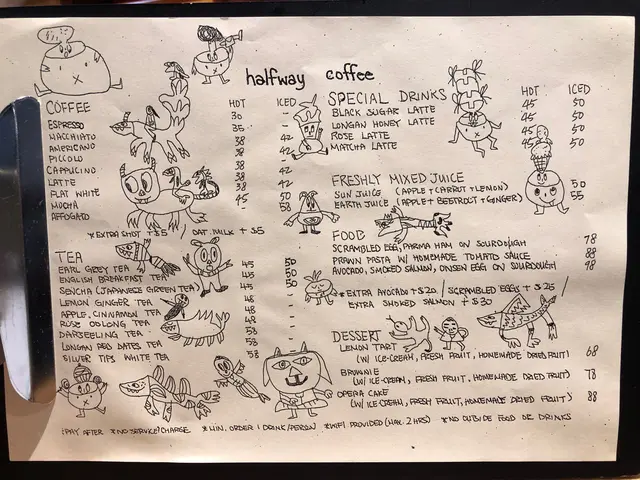 halfway coffee
COFFEE HOT ICED
ESPRESSO 30 -
MACCHIATO 35 -
AMERICANO 38 42
PICCOLO 38
CAPPUCINO 38 42
LATTE 38 42
FLAT WHITE 38
MOCHA 45 50
AFFOGATO - 58
*EXTRA SHOT +$5 / OAT MILK +$5
TEA
EARL GREY TEA 45 50
ENGLISH BREAKFAST TEA 45 50
SENCHA (JAPANESE GREEN TEA) 45 50
LEMON GINGER TEA 48 -
APPLE, CINNAMON TEA 48 -
ROSE OOLONG TEA 48 -
DARJEELING TEA 58 -
LONGAN RED DATES TEA 58 -
SILVER TIPS WHITE TEA 58 -
SPECIAL DRINKS HOT ICED
BLACK SUGAR LATTE 45 50
LONGAN HONEY LATTE 45 50
ROSE LATTE 45 50
MATCHA LATTE 45 50
FRESHLY MIXED JUICE
SUN JUICE (APPLE+CARROT+LEMON) 50
EARTH JUICE (APPLE+BEETROOT+GINGER) 55
FOOD
SCRAMBLED EGG, PARMA HAM ON SOURDOUGH 78
PRAWN PASTA W/ HOMEMADE TOMATO SAUCE 88
AVOCADO, SMOKED SALMON, ONSEN EGG ON SOURDOUGH 98
*EXTRA AVOCADO +$20 / SCRAMBLED EGGS +$25 /
EXTRA SMOKED SALMON +$30
DESSERT
LEMON TART
(W/ ICE-CREAM, FRESH FRUIT, HOMEMADE DRIED FRUIT) 68
BROWNIE
(W/ ICE-CREAM, FRESH FRUIT, HOMEMADE DRIED FRUIT) 78
OPERA CAKE
(W/ ICE-CREAM, FRESH FRUIT, HOMEMADE DRIED FRUIT) 88
*PAY AFTER *NO SERVICE CHARGE *MIN. ORDER 1 DRINK/PERSON *WIFI PROVIDED (MAX. 2 HRS) *NO OUTSIDE FOOD OR DRINKS